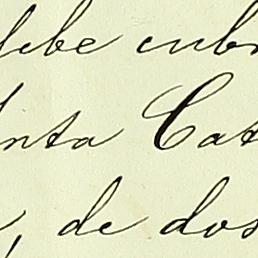 debe cubr
anta Cat
, de dos